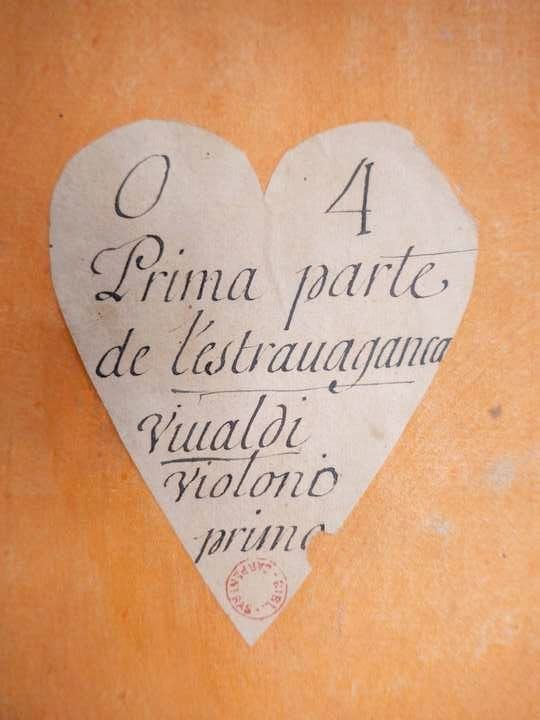 O 4
Prima parte
de l'estrauaganca
Viualdi
violono
primo
BIBL. CARPENTRAS